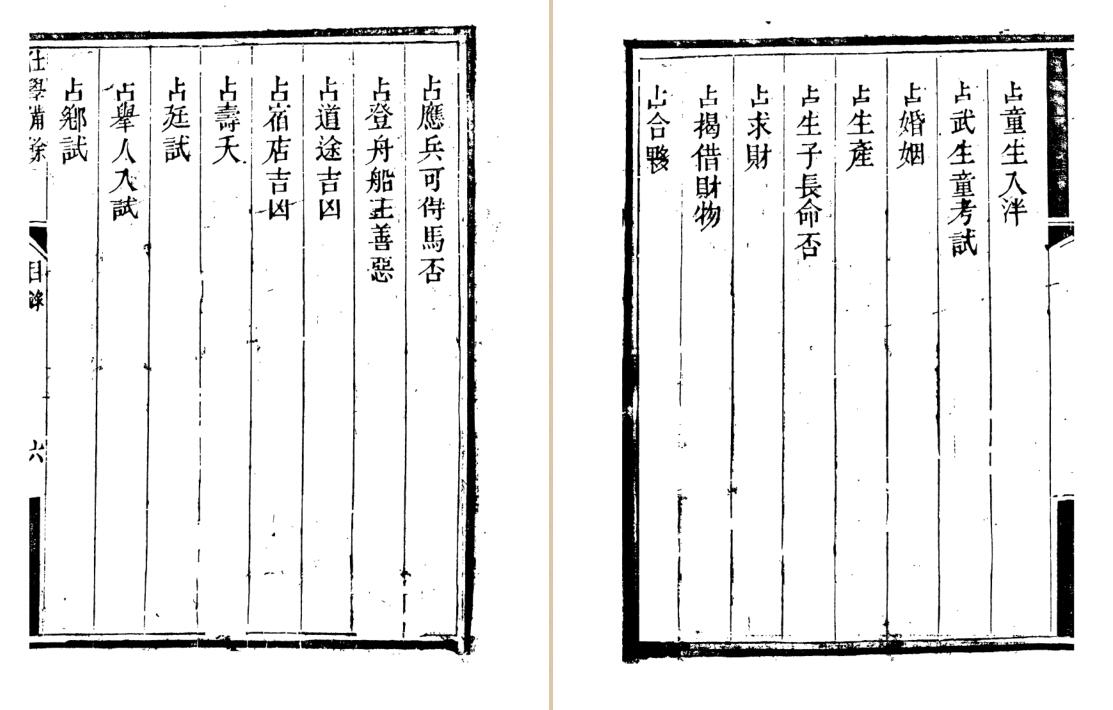 占應兵可得馬否
占登舟船主善惡
占道途吉凶
占宿店吉凶
占壽夭
占廷試
占舉人入試
占鄉試
仕學備餘
目錄
六
占童生入泮
占武生童考試
占婚姻
占生產
占生子長命否
占求財
占揭借財物
占合夥